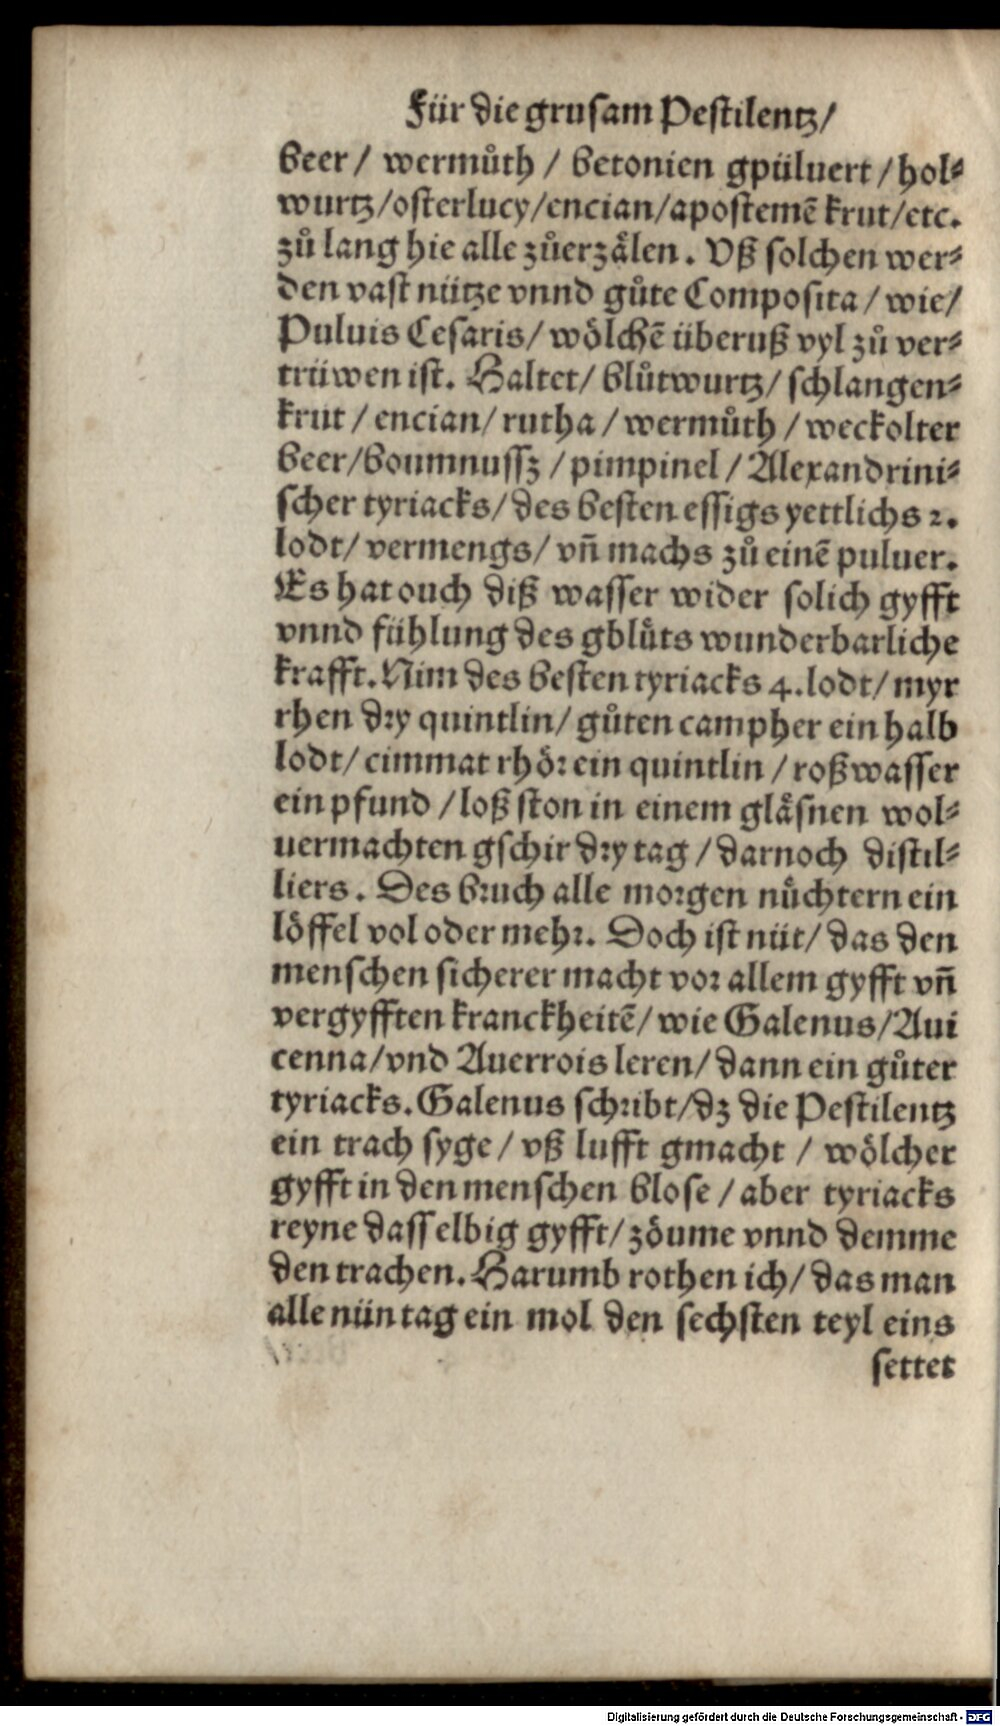 Für die grusam Pestilentz/
beer / wermůth / betonien gpüluert / hol⸗
wurtz/osterlucy/encian/apostemẽ krut/etc.
zů lang hie alle zůerzålen. Vß solchen wer⸗
den vast nütze vnnd gůte Composita / wie/
Puluis Cesaris/ wölchẽ überuß vyl zů ver⸗
trüwen ist. Haltet/ blůtwurtz/ schlangen⸗
krut / encian/ rutha / wermůth / weckolter
beer/boumnussz / pimpinel / Alexandrini⸗
scher tyriacks/ des besten essigs yettlichs 2.
lodt/ vermengs/ vñ machs zů einẽ puluer.
Es hat ouch diß wasser wider solich gyfft
vnnd fühlung des gblůts wunderbarliche
krafft. Nim des besten tyriacks 4. lodt/ myr
rhen dry quintlin/ gůten campher ein halb
lodt/ cimmat rhör ein quintlin / roßwasser
ein pfund / loß ston in einem gläsnen wol⸗
uermachten gschir dry tag / darnoch distil⸗
liers. Des bruch alle morgen nůchtern ein
löffel vol oder mehr. Doch ist nüt/ das den
menschen sicherer macht vor allem gyfft vñ
vergyfften kranckheitẽ/ wie Galenus/Aui
cenna/vnd Auerrois leren/ dann ein gůter
tyriacks. Galenus schribt/dz die Pestilentz
ein trach syge / vß lufft gmacht / wölcher
gyfft in den menschen blose / aber tyriacks
reyne dasselbig gyfft/ zöume vnnd demme
den trachen. Harumb rothen ich/ das man
alle nün tag ein mol den sechsten teyl eins
settet
Digitalisierung gefördert durch die Deutsche Forschungsgemeinschaft - DFG